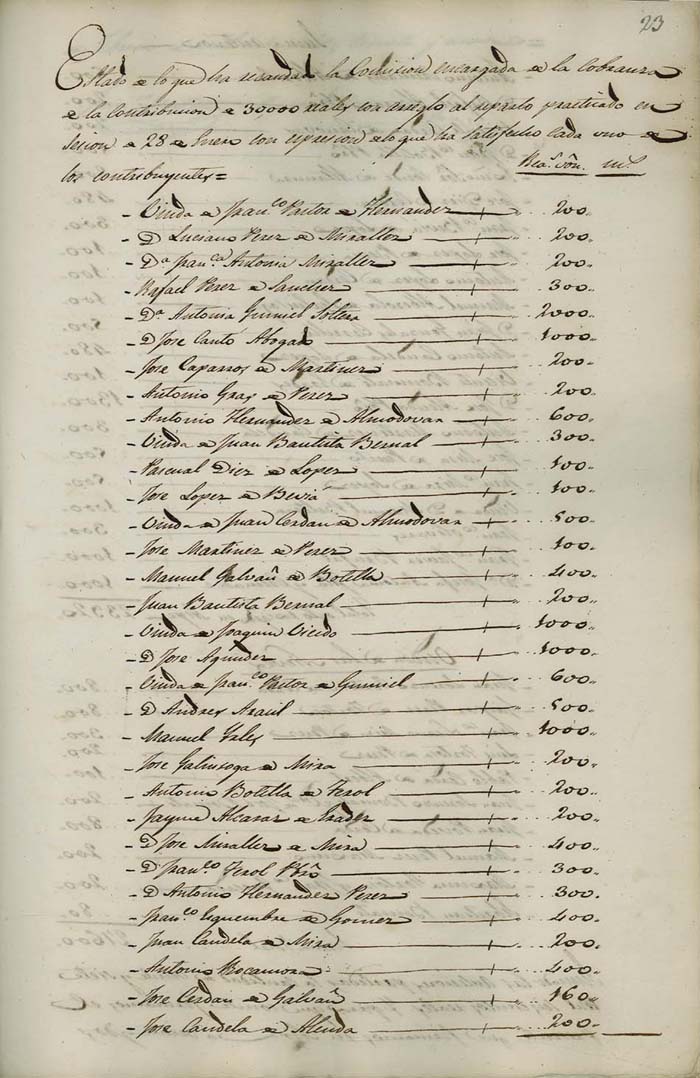 23
Estado de lo que ha recaudado la Comision encargada de la Cobranza
de la Contribucion de 30000 reales con arreglo al reparto practicado en
Secion de 28 de Enero con espresion de lo que ha satisfecho cada uno de
los contribuyentes=
Rea.s von. ms.
- Viuda de Fran.co Pastor de Hernandez 200.
- D Luciano Perez de Miralles 200.
- D.a Fran.ca Antonia Miralles 200.
- Rafael Perez de Sanchez 300.
- D.a Antonia Gumiel Soltera 2000.
- D Jose Cantó Abogado 1000.
- Jose Caparros de Martinez 200.
- Antonio Gras de Perez 200.
- Antonio Hernandez de Almodovar 600.
- Viuda de Juan Bautista Bernal 300.
- Pascual Diez de Lopez 100.
- Jose Lopez de Beviá 100.
- Viuda de Juan Cerdan de Almodovar 500.
- Jose Martinez de Perez 100.
- Manuel Galvañ de Botella 400.
- Juan Bautista Bernal 200.
- Viuda de Joaquin Vicedo 1000.
- D Jose 1000.
- Viuda de Fran.co Pastor de Gumiel 600.
- D Andres Aracil 500.
- Manuel Yales 1000.
- Jose Galinsoga de Mira 200.
- Antonio Botella de Terol 200.
- Jayme Alcaraz de 200.
- D Jose Miralles de Mira 400.
- D Fran.co Terol Pbro 300.
- D Antonio Hernandez Perez 300.
- Fran.co Esquembre de Gomez 400.
- Juan Candela de Mira 200.
- Antonio Rocamora 400.
- Jose Cerdan de Galvañ 160.
- Jose Candela de Alenda 200.